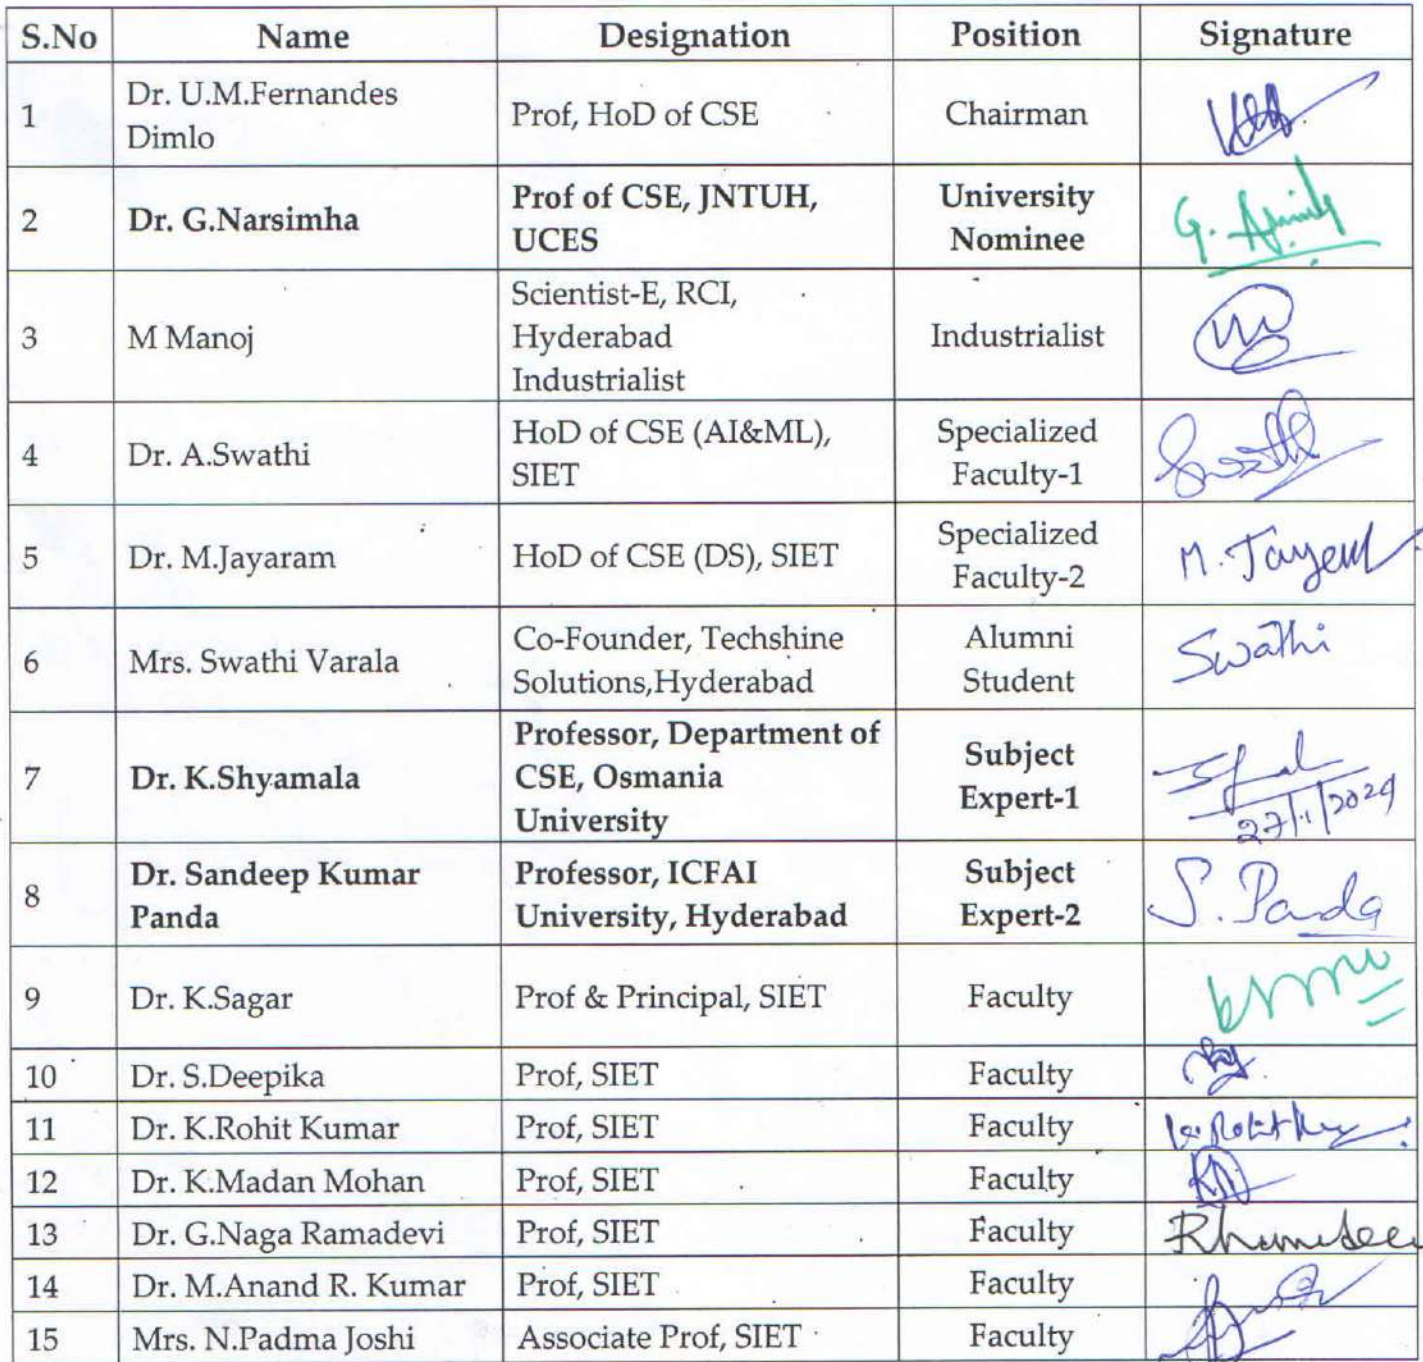 S.No Name Designation Position Signature
1 Dr. U.M.Fernandes Dimlo Prof, HoD of CSE Chairman
2 Dr. G.Narsimha Prof of CSE, JNTUH, UCES University Nominee G.
3 M Manoj Scientist-E, RCI, Hyderabad Industrialist Industrialist
4 Dr. A.Swathi HoD of CSE (AI&ML), SIET Specialized Faculty-1 Swathi
5 Dr. M.Jayaram HoD of CSE (DS), SIET Specialized Faculty-2 M.
6 Mrs. Swathi Varala Co-Founder, Techshine Solutions,Hyderabad Alumni Student Swathi
7 Dr. K.Shyamala Professor, Department of CSE, Osmania University Subject Expert-1
8 Dr. Sandeep Kumar Panda Professor, ICFAI University, Hyderabad Subject Expert-2 S. Panda
9 Dr. K.Sagar Prof & Principal, SIET Faculty
10 Dr. S.Deepika Prof, SIET Faculty
11 Dr. K.Rohit Kumar Prof, SIET Faculty
12 Dr. K.Madan Mohan Prof, SIET Faculty
13 Dr. G.Naga Ramadevi Prof, SIET Faculty
14 Dr. M.Anand R. Kumar Prof, SIET Faculty
15 Mrs. N.Padma Joshi Associate Prof, SIET Faculty